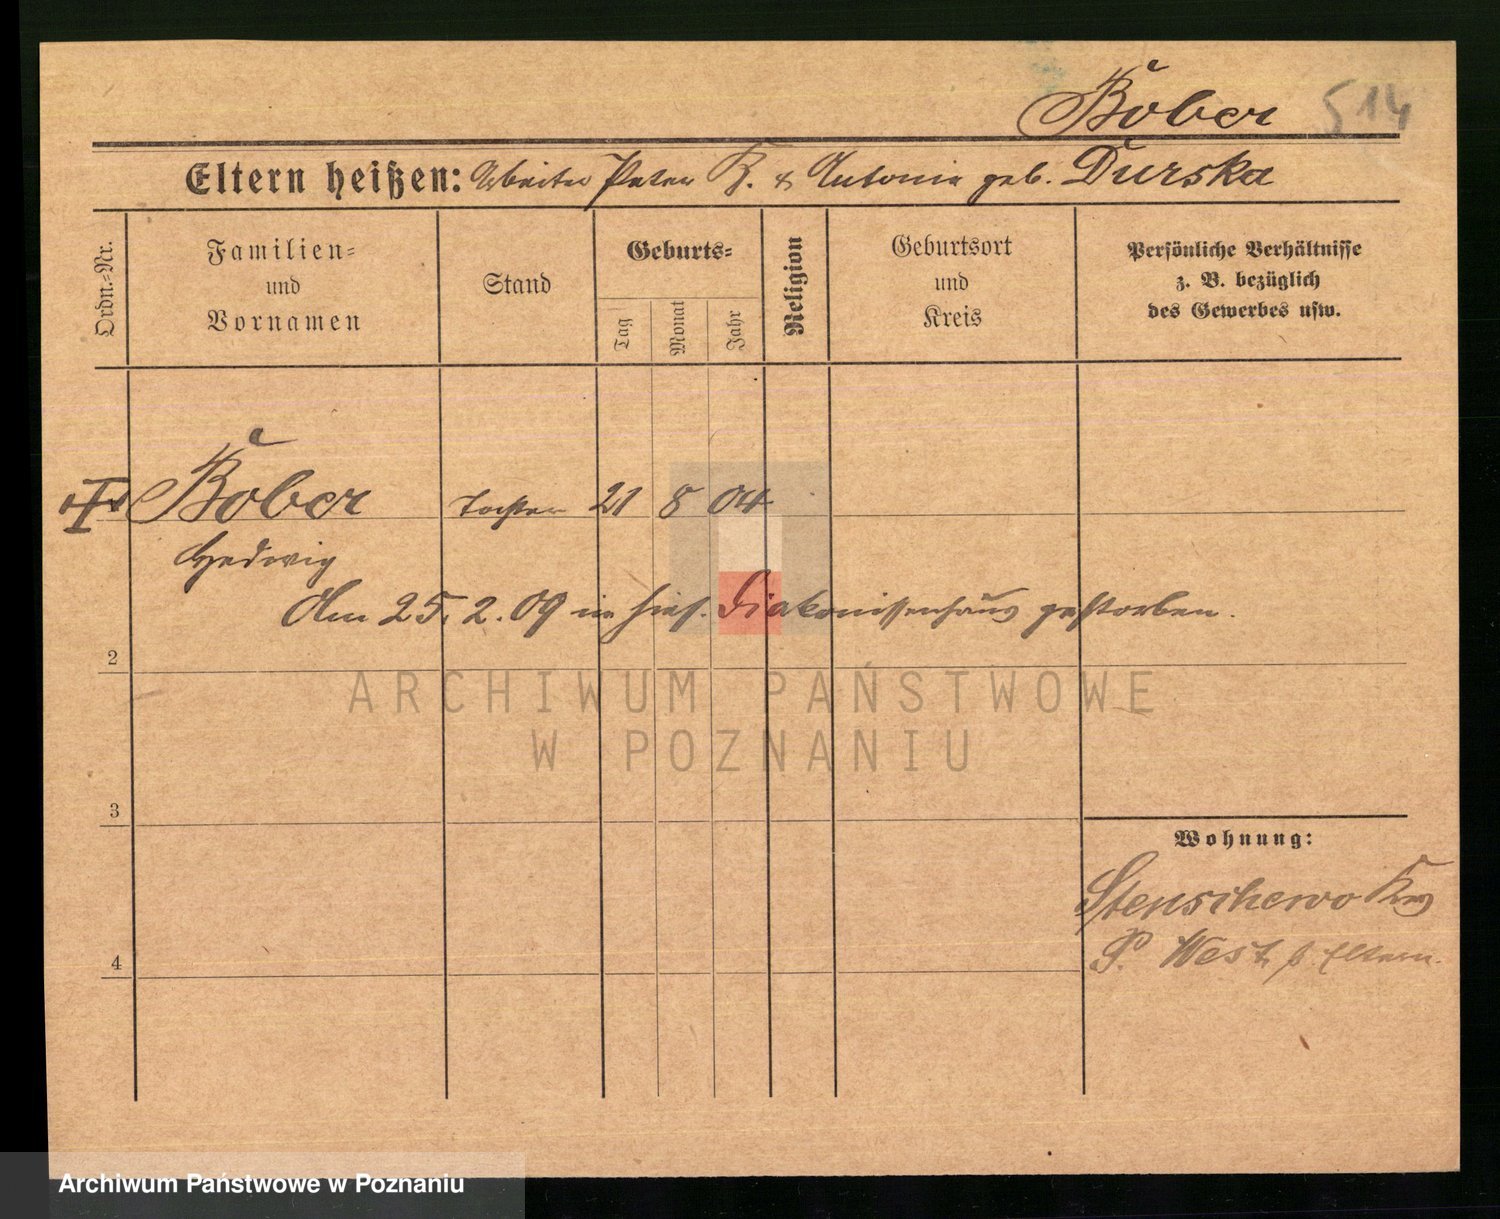 Bober 514
Eltern heißen: Arbeiter Peter B. & Antonie geb. Durska
Ordn.=Nr.
Familien=
und
Vornamen
Stand
Geburts=
Tag
Monat
Jahr
Religion
Geburtsort
und
Kreis
Persönliche Verhältnisse
z. B. bezüglich
des Gewerbes usw.
Bober Tochter 21 8 04
Hedwig
Am 25. 2. 09 im hies. Diakonissenhaus gestorben.
2
ARCHIWUM PAŃSTWOWE
W POZNANIU
3
Wohnung:
Stenschewo
4
P. West b. Eltern.
Archiwum Państwowe w Poznaniu